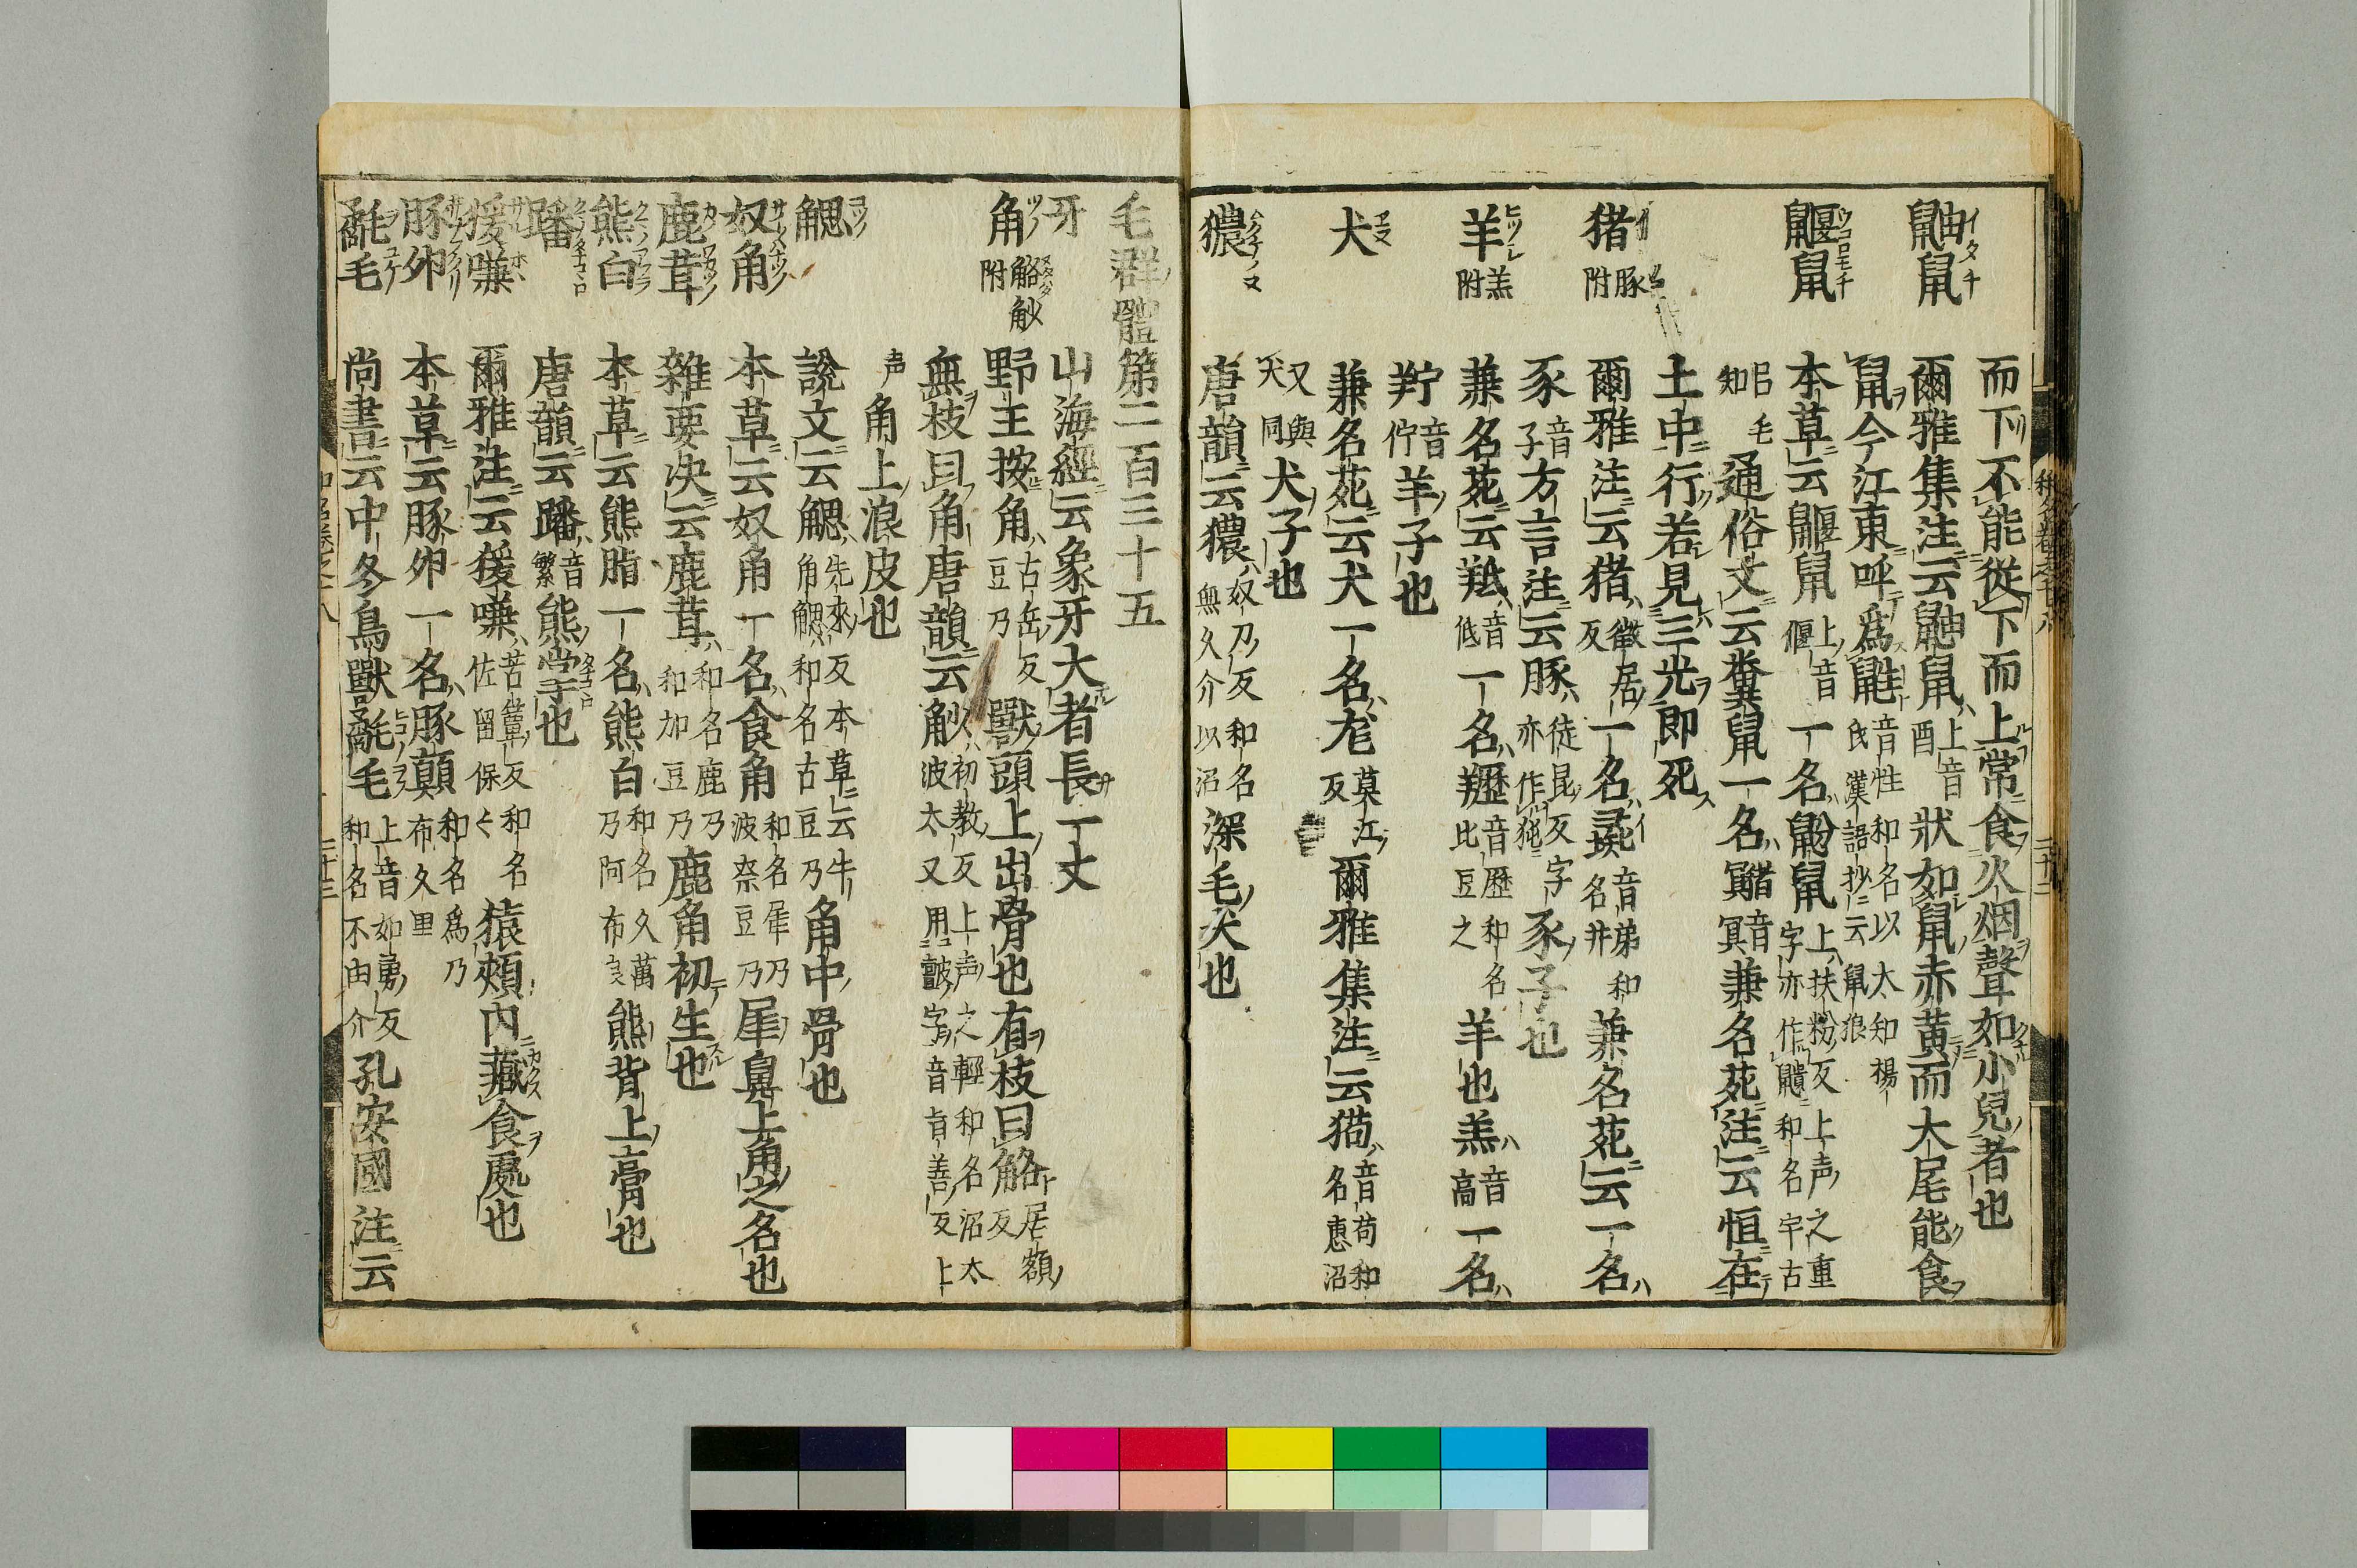 而下不能從下而上常食火烟聲如小兒者也
鼬鼠 爾雅集注云鼬鼠上音酉狀如鼠赤黄而大尾能食
鼠今江東呼爲鼪音性和名以太知楊氏漢語抄云鼠狼
鼴鼠 本草云鼴鼠上音偃一名鼢鼠上扶粉反上声之重字亦作鼶和名宇古
呂毛知 通俗文云糞鼠一名音冥兼名苑注云恒在
土中行若見三光即死
猪 豚附 爾雅注云猪徵居反一名彘音弟和名井兼名苑云一名
豕音子方言注云豚徒昆反字亦作㹠豕子也
羊 羔附 兼名苑云羝音低一名羺音歴和名比豆之羊也羔音高一名
羜音佇羊子也
犬 兼名苑云犬一名尨莫江反爾雅集注云猗音苟和名惠沼
又與犬同犬子也
獳 唐韻云獳奴刀反和名無久介以沼深毛犬也
毛群體第二百三十五
牙 山海經云象牙大者長一丈
角 觡觘附 野王按角古岳反豆乃獸頭上出骨也有枝曰觡居額反
無枝曰角唐韻云觘初教反上声之輕和名沼太波太又用皾字音旨善反上
声角上浪皮也
䚡 說文云䚡先來反角䚡和名古豆乃本草云牛角中骨也
奴角 本草云奴角一名食角和名犀乃波奈豆乃犀鼻上角之名也
鹿茸 雜要决云鹿茸和名鹿乃和加豆乃鹿角初生也
熊白 本草云熊脂一名熊白和名久萬乃阿布良熊背上膏也
蹯 唐韻云蹯音繁熊掌也
猨嗛 爾雅注云猨嗛苦簟反和名佐留保々猿頰内藏食處也
豚卵 本草云豚卵一名豚顛和名爲乃布久里
氄毛 尚書云中冬鳥獸氄毛上音如勇反和名不由介孔安國注云